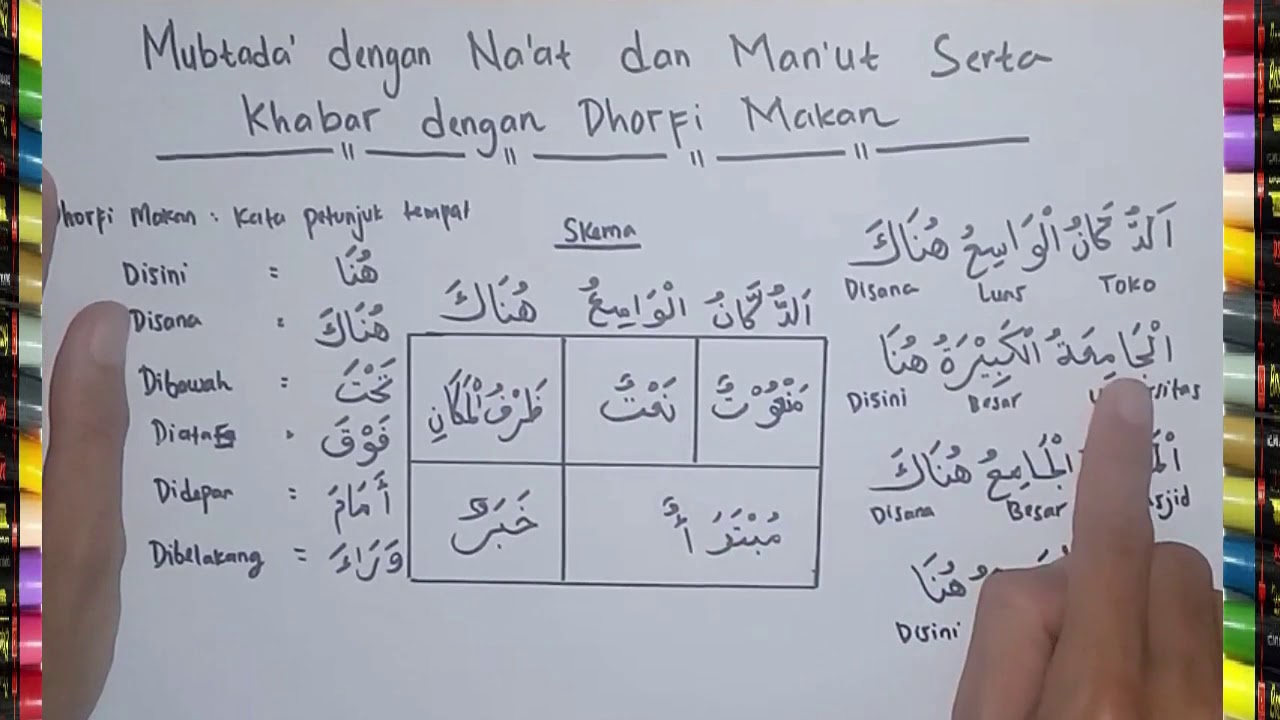 Mubtada' dengan Na'at dan Man'ut Serta
Khabar dengan Dhorfi Makan
Makan : Kata petunjuk tempat
Disini = هُنَا
Disana = هُنَاكَ
Dibawah = تَحْتَ
Diatas = فَوْقَ
Didepan = أَمَامَ
Dibelakang = وَرَاءَ
Skema
اَلدُّكَّانُ الْوَاسِعُ هُنَاكَ
مَنْعُوْتٌ نَعْتٌ ظَرْفُ الْمَكَانِ
مُبْتَدَأٌ خَبَرٌ
اَلدُّكَانُ الْوَاسِعُ هُنَاكَ
Disana Luas Toko
الْجَامِعَةُ الْكَبِيْرَةُ هُنَا
Disini Besar
الْجَامِعُ هُنَاكَ
Disana Besar
هُنَا
Disini